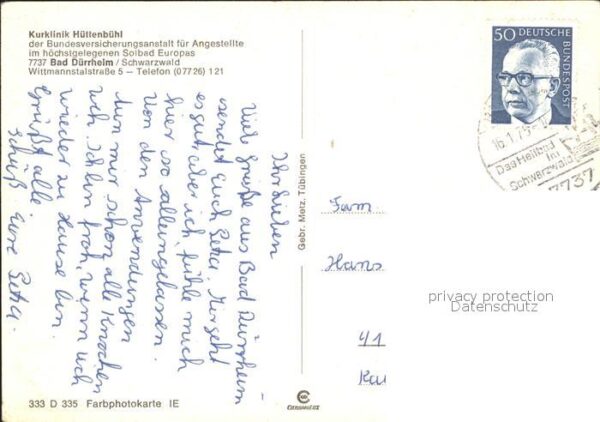 Kurklinik Hüttenbühl
der Bundesversicherungsanstalt für Angestellte
im höchstgelegenen Solbad Europas
7737 Bad Dürrheim / Schwarzwald
Wittmannstalstraße 5 – Telefon (07726) 121
Ihr Lieben
Viele Grüße aus Bad Dürrheim
sendet Euch Petra. Mir geht
es gut, aber ich fühle mich
hier so alleingelassen.
Von den Anwendungen
tun mir schon alle Knochen
weh. Ich bin froh, wenn ich
wieder zu Hause bin.
Grüßt alle
Tschüß Eure Petra.
Gebr. Metz, Tübingen
50 DEUTSCHE
BUNDESPOST
16.1.75
Das Heilbad
im
Schwarzwald
7737
Fam
Hans
41
privacy protection
Datenschutz
333 D 335 Farbphotokarte IE